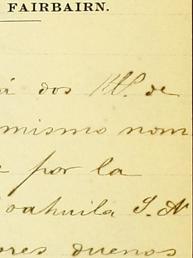 FAIRBAIRN.
á dos de
mismo nom
por la
oahuila S. N
ores duenos